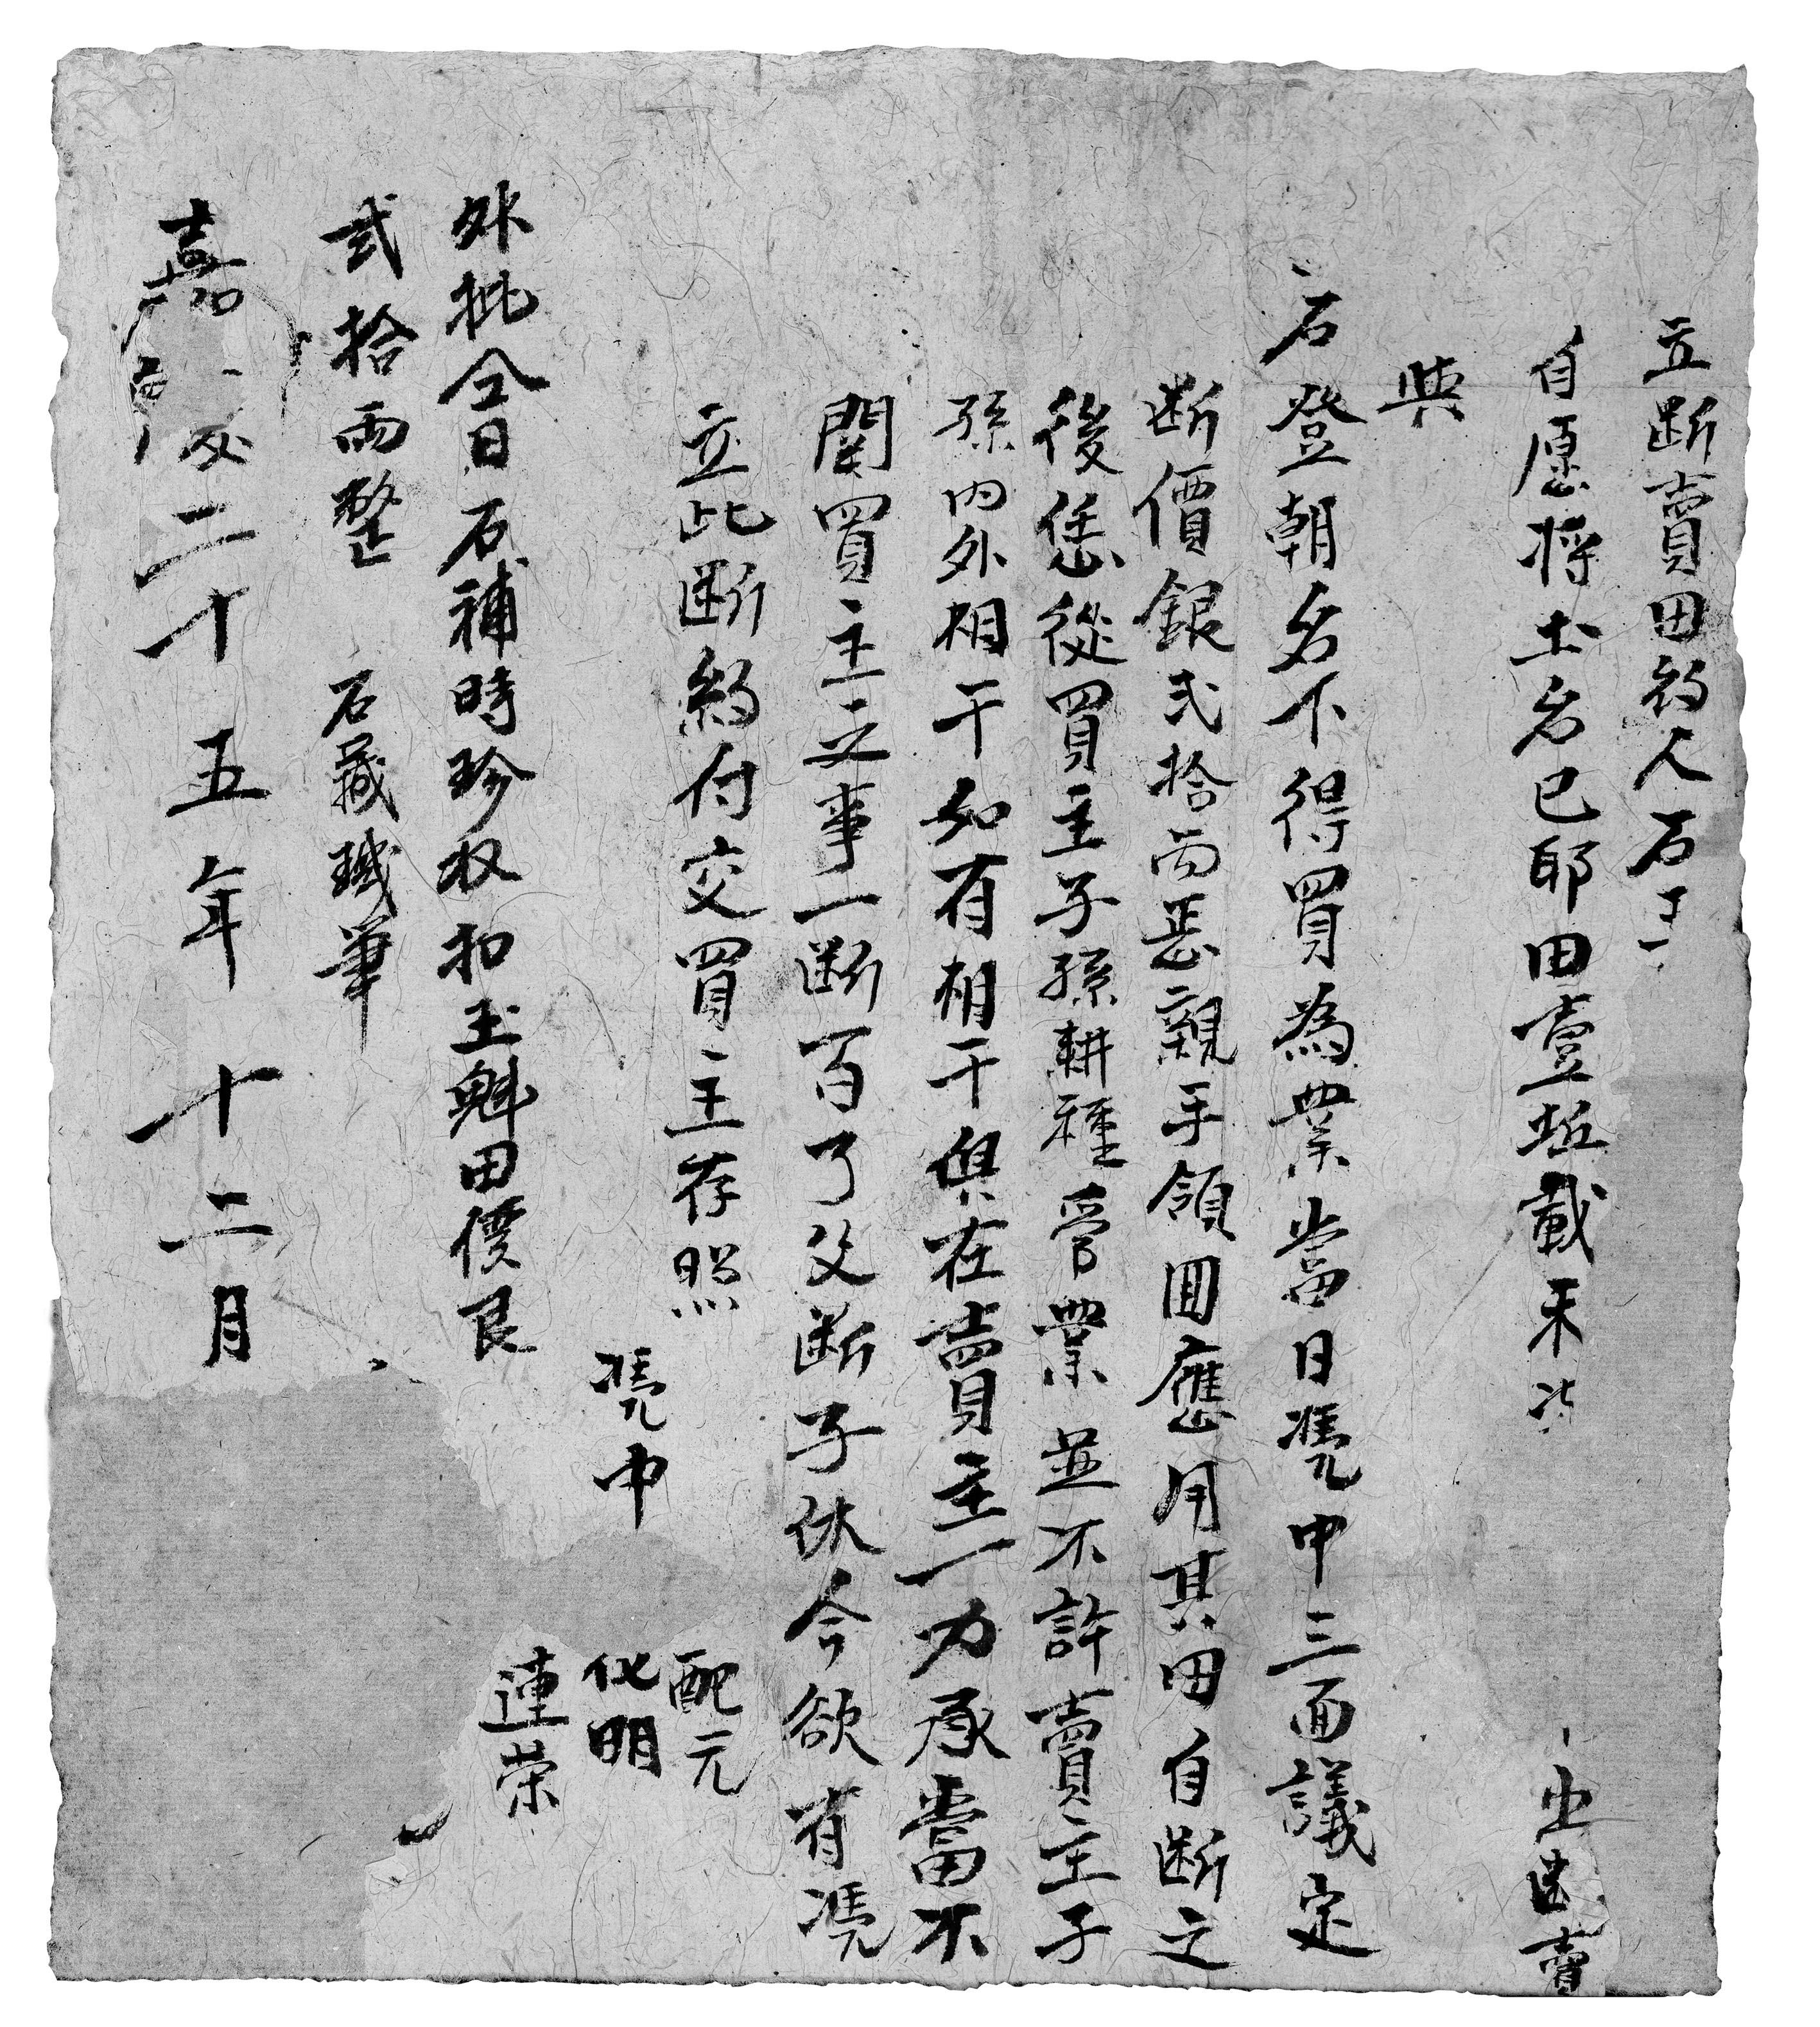 立斷賣田約人石
自愿将土名已耶田壹坵載禾 出断賣
與
石登朝名下得買為業當日凭中三面議定
断價銀弍拾両恁親手領囬應用其田自断之
後恁從買主子孫耕種管業並不許賣主子
孫内外相干如有相干俱在賣主一力承當不
関買主之事一断百了父断子休今欲有凭
立此断約付交買主存照
凭中
配元
化明
連荣
外批仝日石補時珍収扣玉魁田價艮
弍拾両整 石藏璣筆
嘉慶二十五年十二月